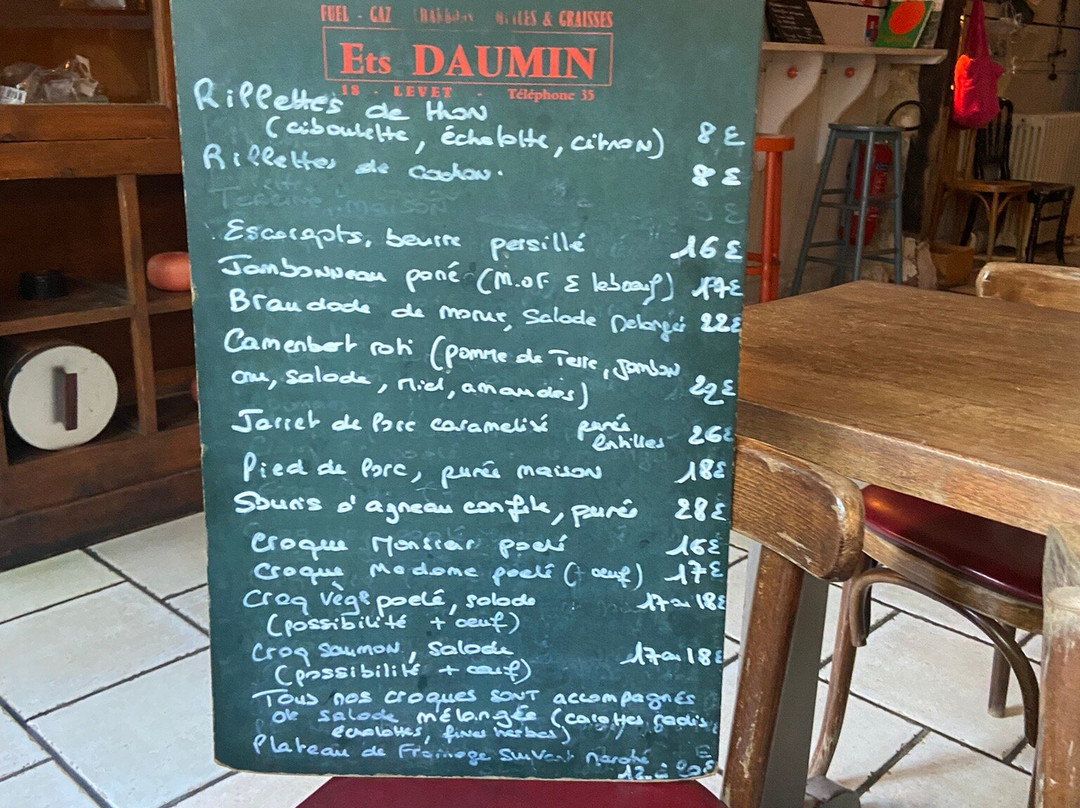 FUEL - GAZ CHARBONS HUILES & GRAISSES
Ets DAUMIN
18 - LEVET - Téléphone 35
Rillettes de thon
(ciboulette, échalotte, citron) 8€
Rillettes de cochon. 8€
Terrine maison 9€
Escargots, beurre persillé 16€
Jambonneau pané (M.OF & leboeuf) 17€
Brandade de morue, salade melangée 22€
Camenbert roti (pomme de Terre, Jambon
cru, salade, miel, amandes) 22€
Jarret de Porc caramelisé purée
lentilles 26€
Pied de Porc, purée maison 18€
Souris d'agneau confite, purée 28€
Croque Monsieur poelé 16€
Croque Madame poelé (+ oeuf) 17€
Croq végé poelé, salade 17 ou 18€
(possibilité + oeuf)
Croq saumon, salade 17 ou 18€
(possibilité + oeuf)
Tous nos croques sont accompagnés
de salade mélangée (carottes, radis,
echalottes, fines herbes)
Plateau de Fromage suivant marché
12 à